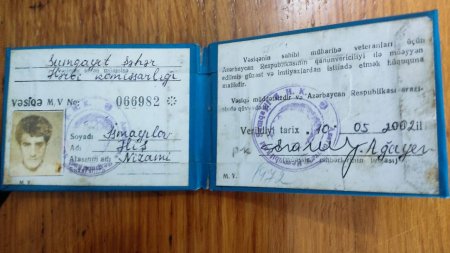 Sumqayıt şəhər
Hərbi komissarlığı
VƏSİQƏ M. V No: 066982
Soyadı İsmayılov
Adı
Atasının adı Nizami
M. V.
Vəsiqənin sahibi müharibə veteranları üçün
Azərbaycan Respublikasının qanunvericiliyi ilə müəyyən
edilmiş güzəşt və imtiyazlardan istifadə etmək hüququna
malikdir.
Vəsiqə müddətsizdir və Azərbaycan Respublikası ərazi-
Verildiyi tarix 10 05 2002 il
Y. Ağayev
M. V.